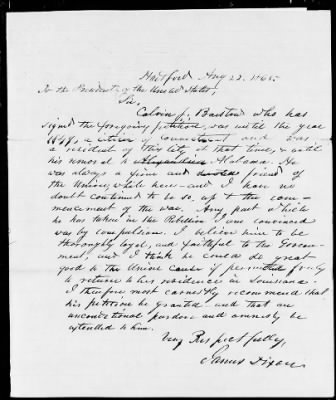 Hartford Aug 22, 1865
To the President of the United States,
Sir,
Calvin J. Barstow who has
signed the foregoing petition, was until the year
1847, a citizen of Connecticut and was
a resident of this city at that time, & until
his removal to Alexandria Alabama. He
was always a firm and devoted friend of
the Union, while here - and I have no
doubt continued to be so, up to the com-
mencement of the war. Any part which
he has taken in the Rebellion I am convinced
was by compulsion. I believe him to be
thoroughly loyal, and faithful to the Govern-
ment, and I think he could do great
good to the Union cause if permitted freely
to return to his residence in Louisiana.
I therefore most earnestly recommend that
his petition be granted and that an
unconditional pardon and amnesty be
extended to him.
Very Respectfully,
James Dixon